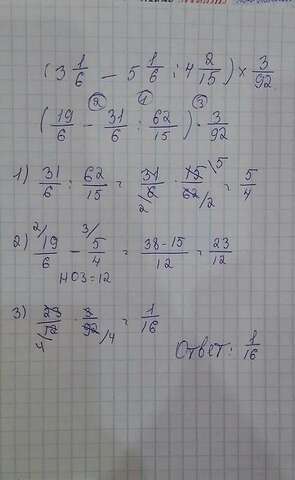 (3 1/6 - 5 1/6 : 4 2/15) × 3/92
(19/6 - 31/6 : 62/15) · 3/92
② ① ③
1) 31/6 : 62/15 = 31/6 · 15/62 = 5/4
2 5 2
2) 19/6 - 5/4 = 38-15/12 = 23/12
2 3
НОЗ=12
3) 23/12 · 3/92 = 1/16
4 4
Ответ: 1/16